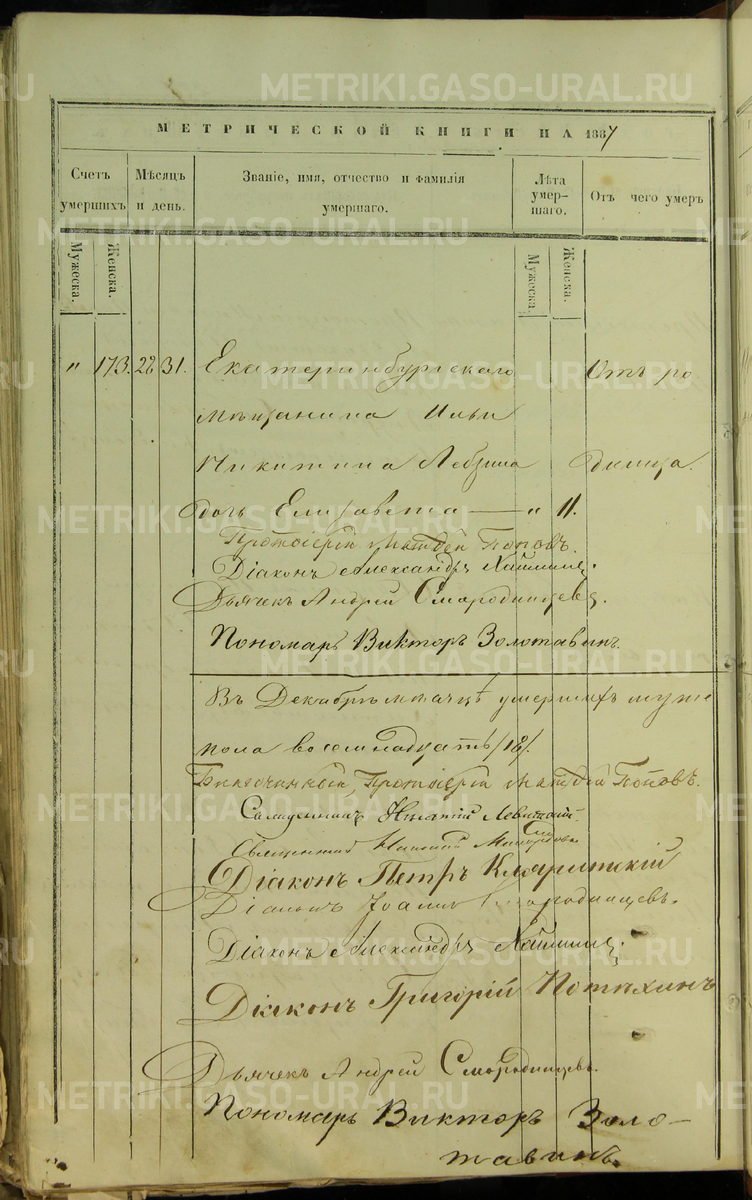 METRIKI.GASO-URAL.RU
МЕТРИЧЕСКОЙ КНИГИ НА 1887
Счетъ умершихъ
Мужеска.
Женска.
Мѣсяцъ и день.
Званіе, имя, отчество и фамилія умершаго.
Лѣта умершаго.
Мужеска.
Женска.
Отъ чего умеръ
" 173. 28 31. Екатеринбургскаго Отъ ро
мѣщанина Ильи
Никитина димца.
дочь Елизавета — " 11.
Протоіерей Матѳей Поповъ.
Діаконъ Александръ
Дьячекъ Андрей Смородинцевъ.
Пономарь Викторъ Золотавинъ.
Въ Декабрѣ мѣсяцѣ умершихъ муже
пола восемнадцать /18/.
Протоіерей Матѳей Поповъ.
Священникъ Игнатій Левитскій.
Священник
Діаконъ Петръ
Діаконъ Іоаннъ Смородинцевъ.
Діаконъ Александръ
Діаконъ Григорій Потѣхинъ
Дьячекъ Андрей Смородинцевъ.
Пономарь Викторъ Золо-
тавинъ.